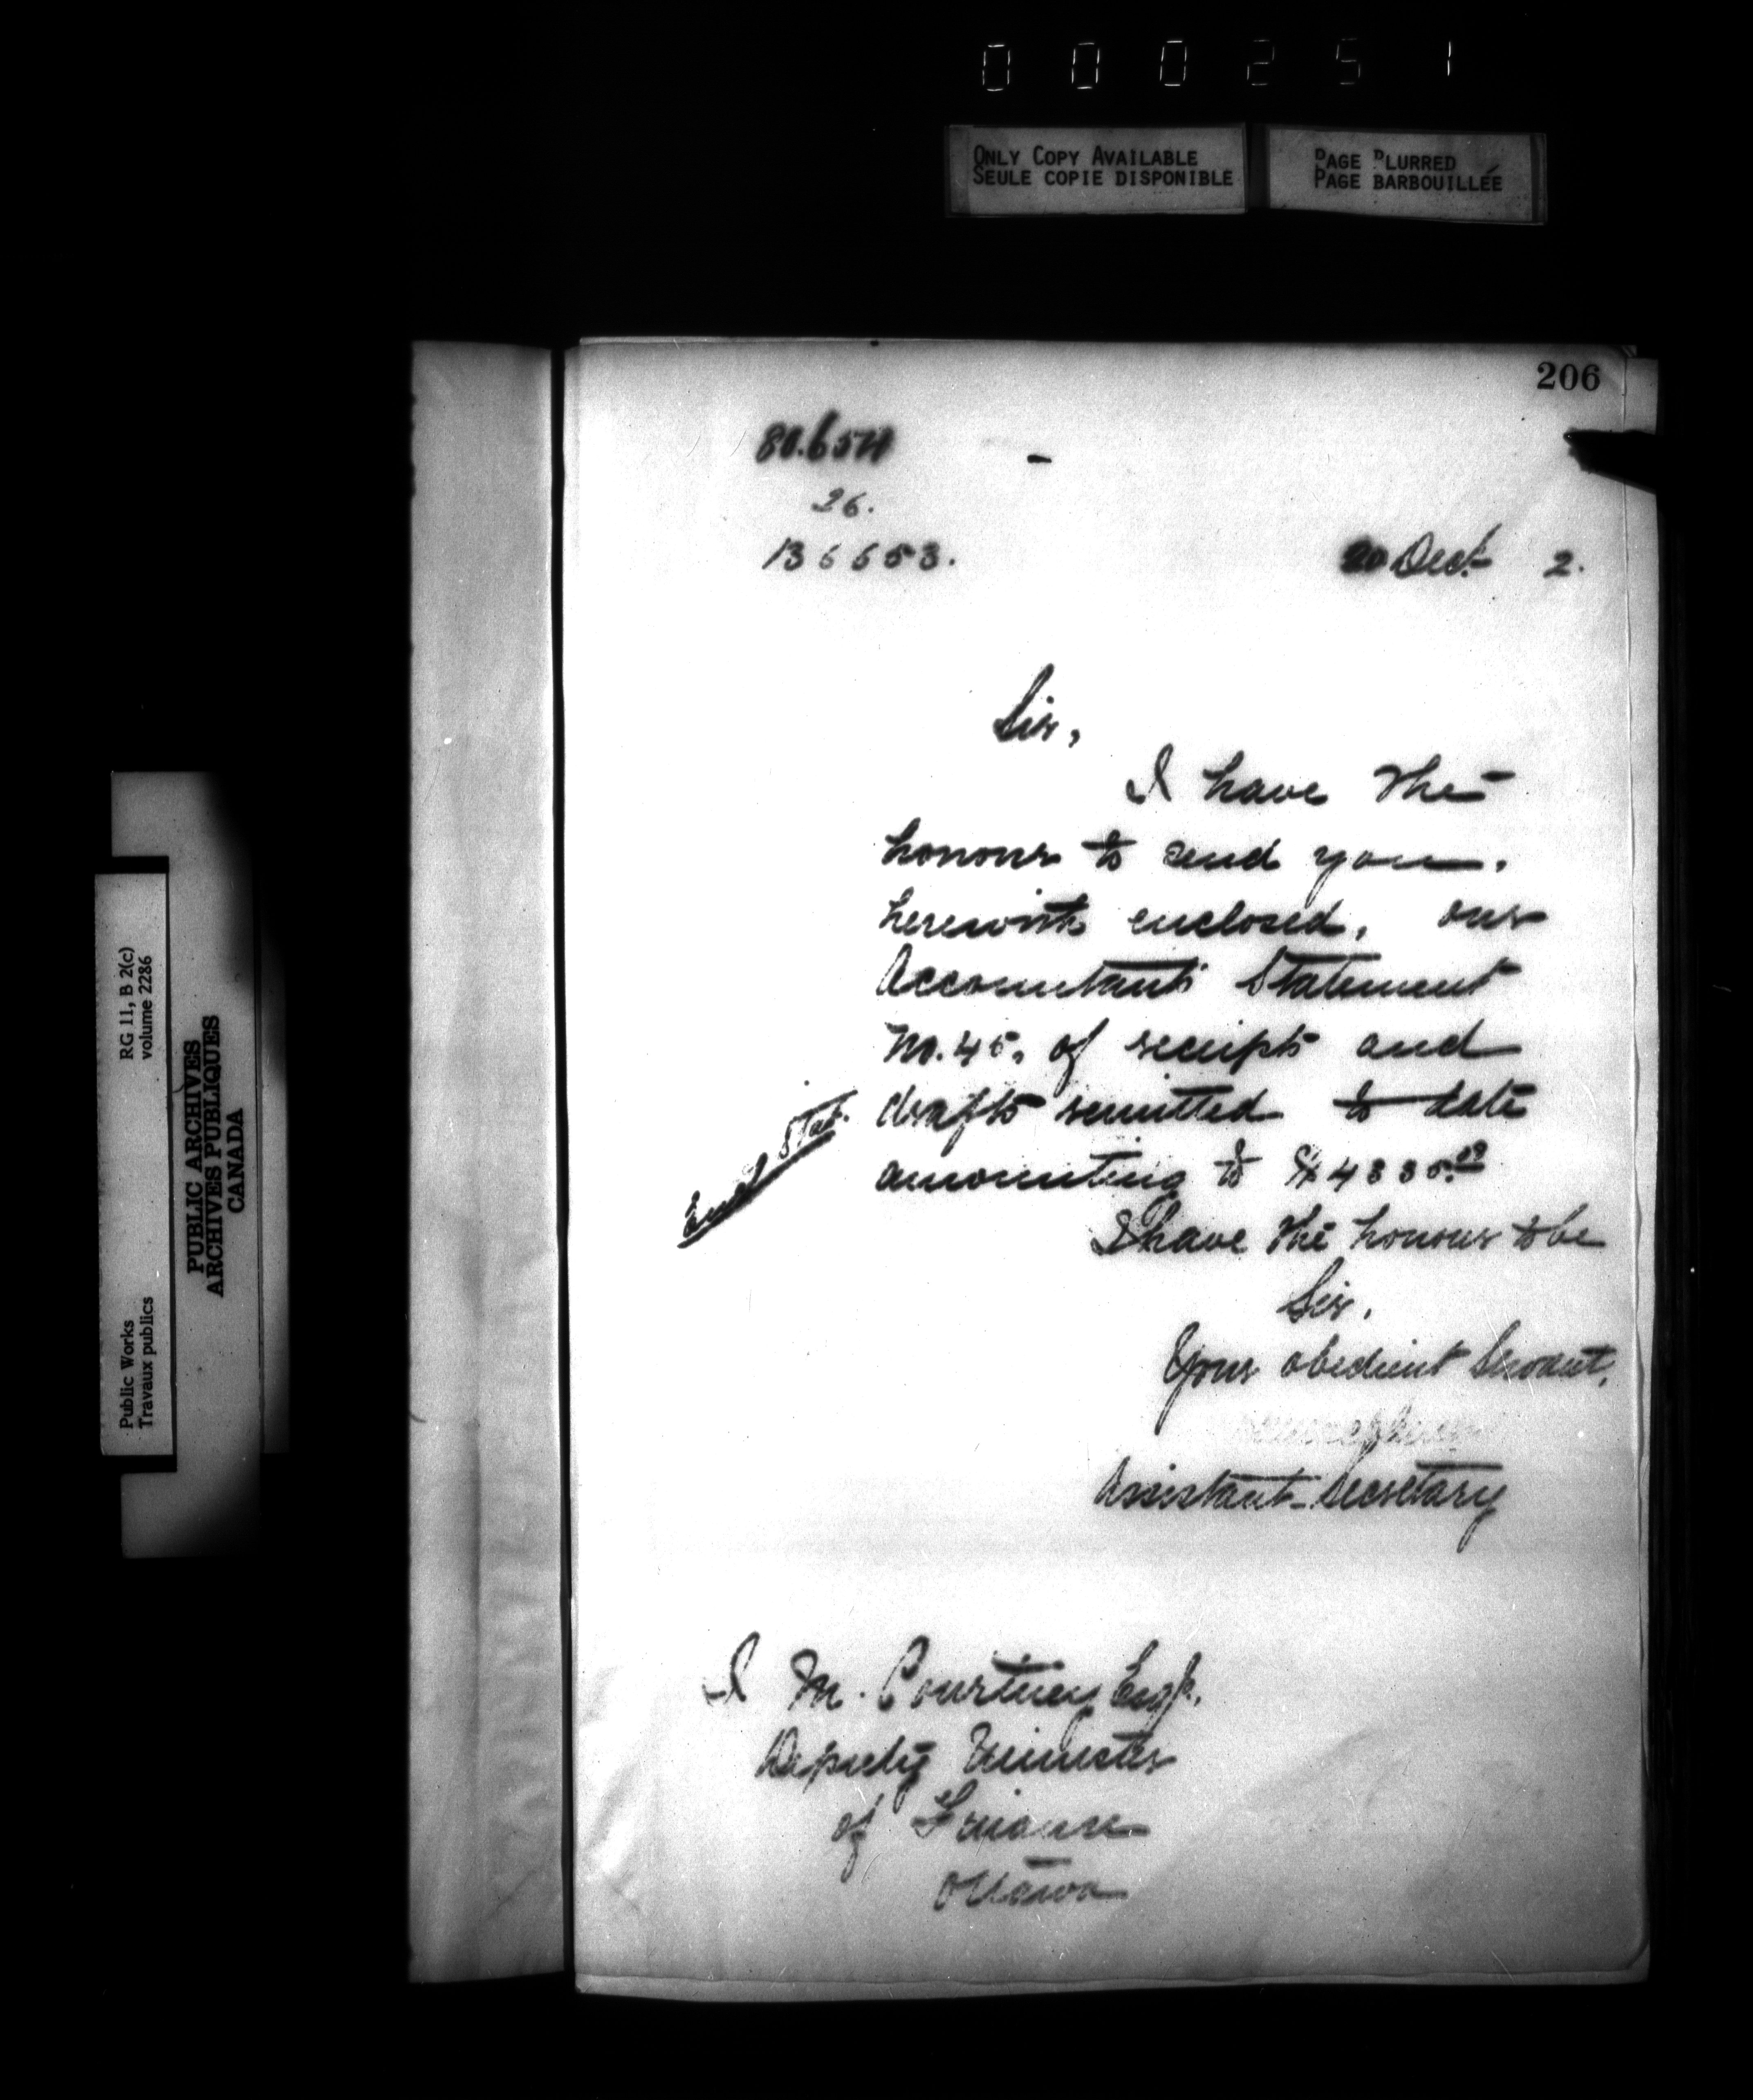 000251
ONLY COPY AVAILABLE
SEULE COPIE DISPONIBLE
PAGE BLURRED
PAGE BARBOUILLÉE
206
26.
136653.
20 Dect. 2.
Sir,
I have the
honour to send you.
herewith enclosed, our
Accountant's Statement
No. 45, of receipts and
drafts remitted to date
amounting to $4335.
Stat.
I have the honour to be
Sir,
Your obedient Servant,
Assistant-Secretary
J M. Courtney Esqr.
Deputy Minister
of Finance
Ottawa
Public Works
Travaux publics
RG 11, B 2(c)
volume 2286
PUBLIC ARCHIVES
ARCHIVES PUBLIQUES
CANADA